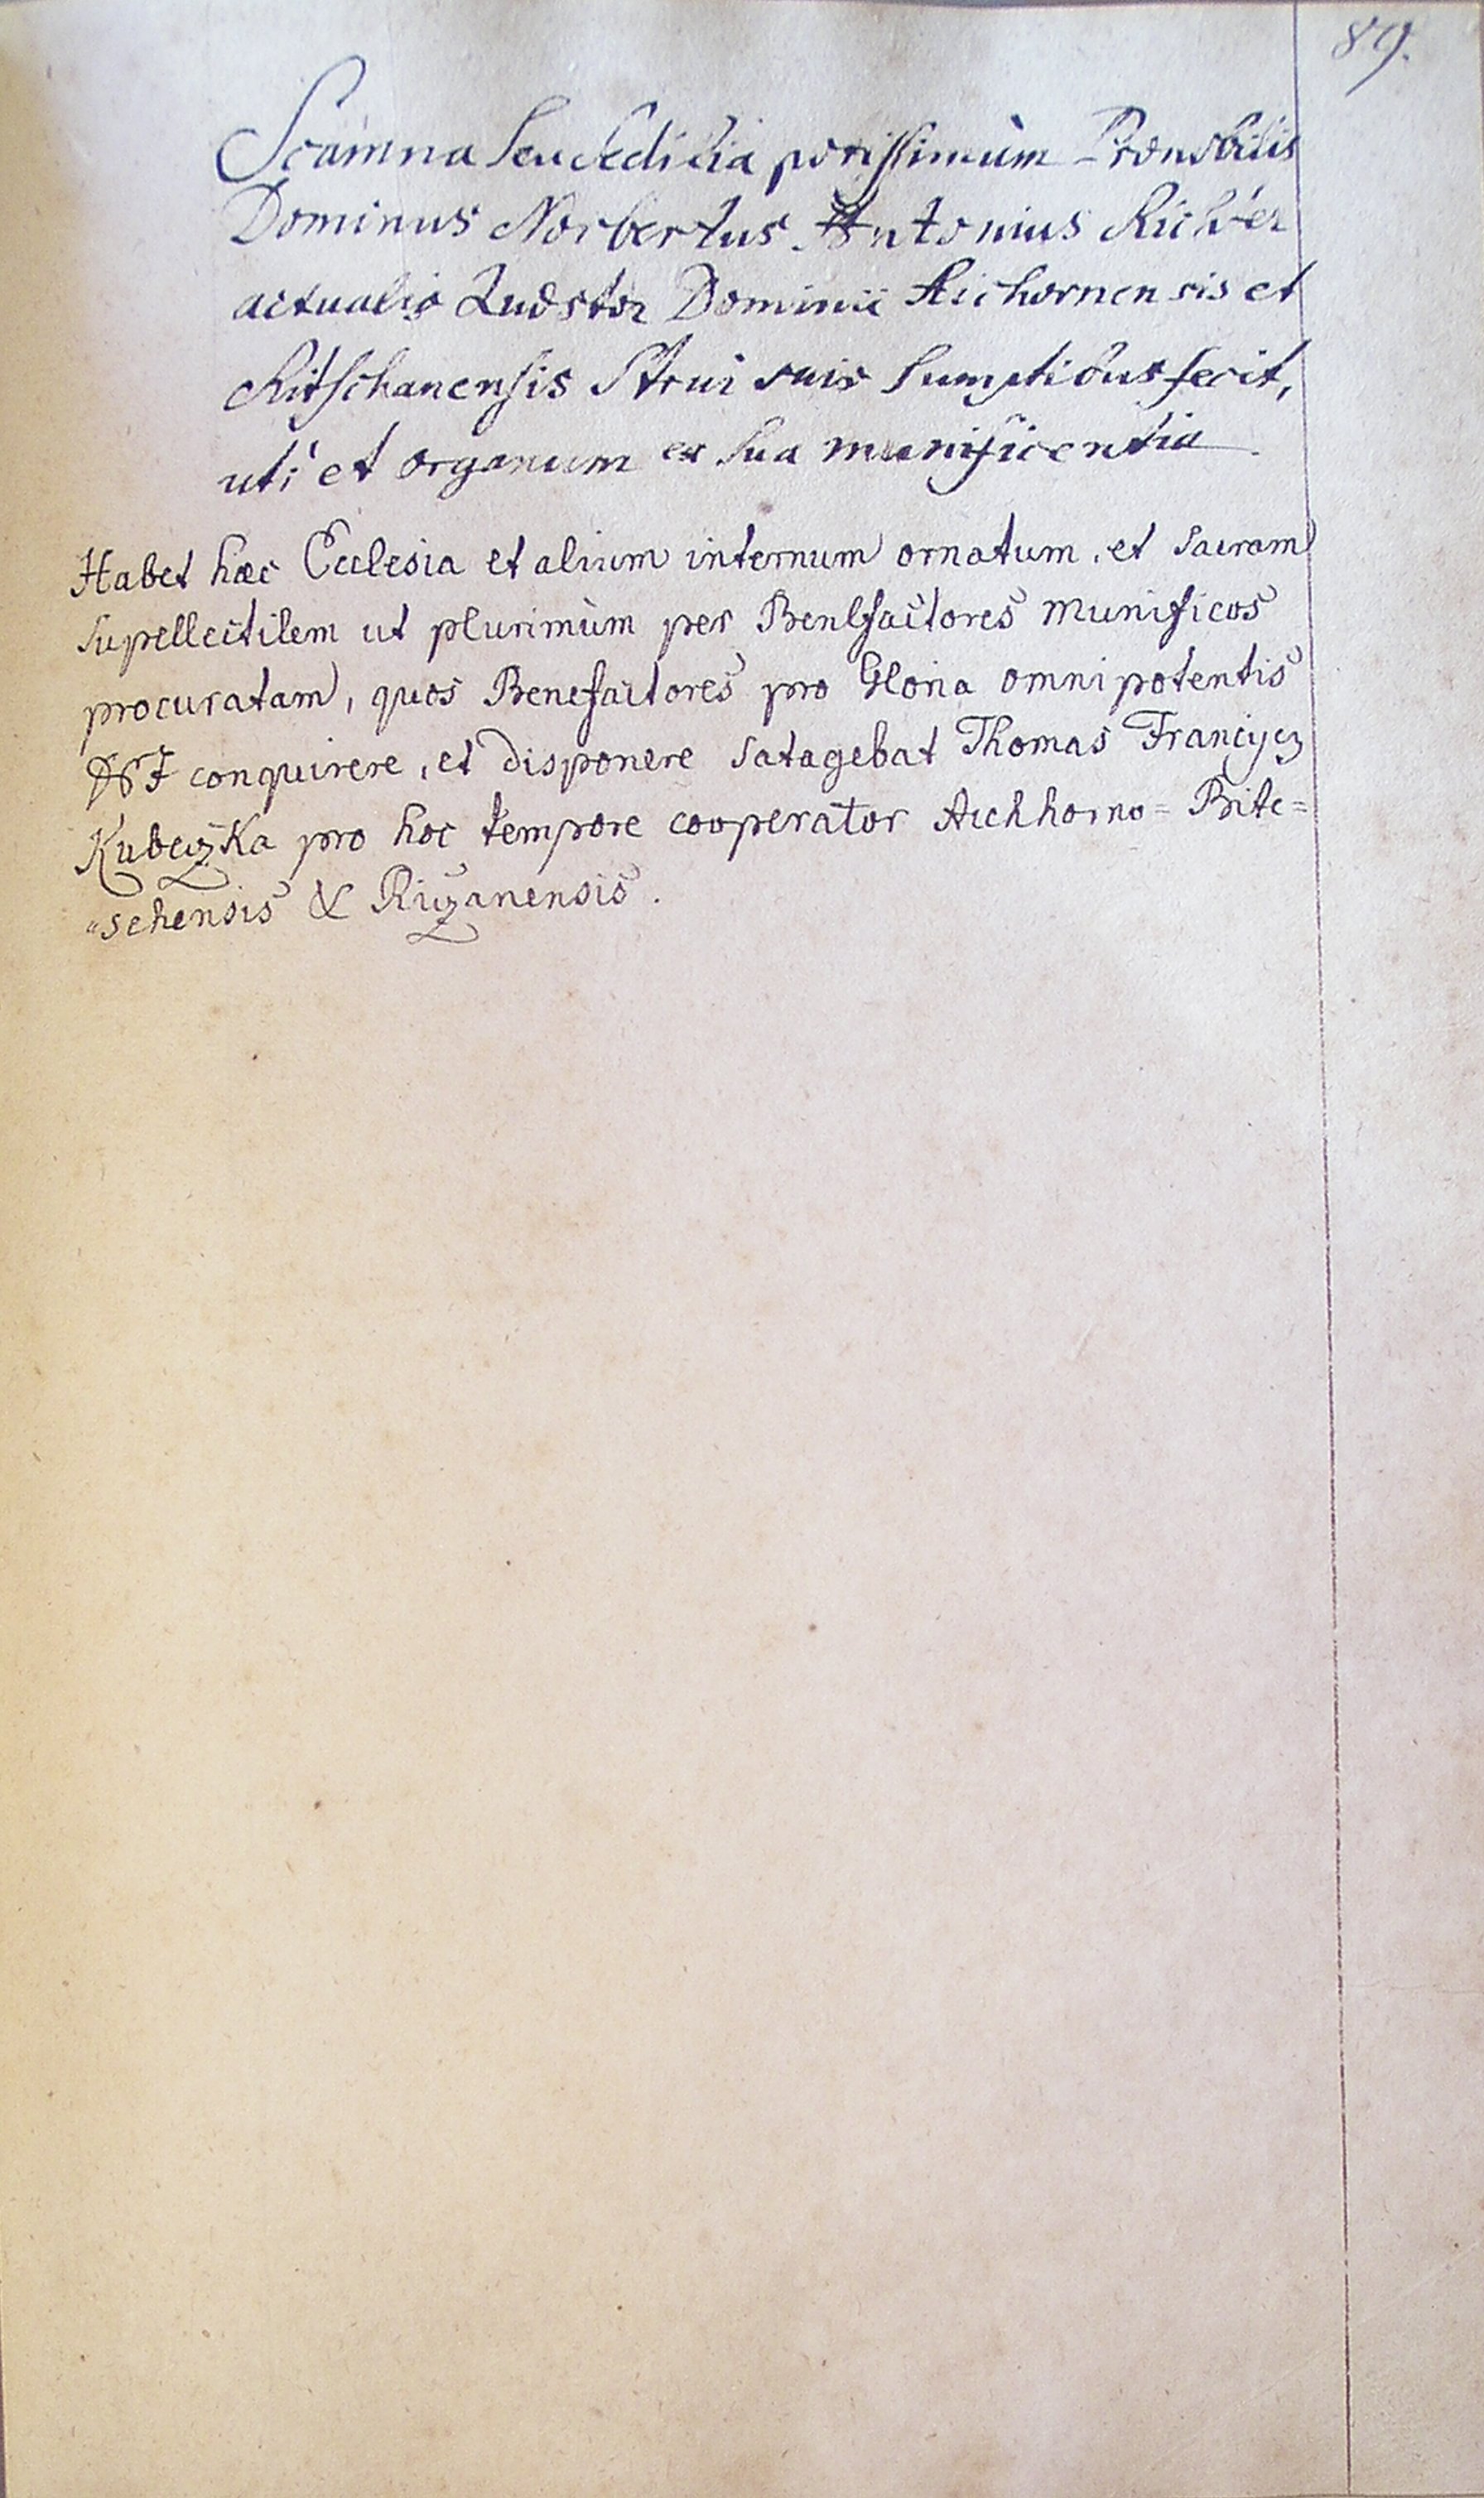 89.
Scamna seu Sedilia potissimùm Prænobilis
Dominus Norbertus Antonius Richter
actualis Quæstor Dominii Aichornensis et
Ritschanensis Strui suis sumptibus fecit,
uti et organum ex sua munificentia
Habet hæc Ecclesia et alium internum ornatum, et sacram
supellectilem ut plurimùm per Benefactores munificos
procuratam, quos Benefactores pro Gloria omnipotentis
conquirere, et disponere satagebat Thomas Franciscz
Kubeczka pro hoc tempore cooperator Aichhorno=Bite=
"schensis & Riczanensis.